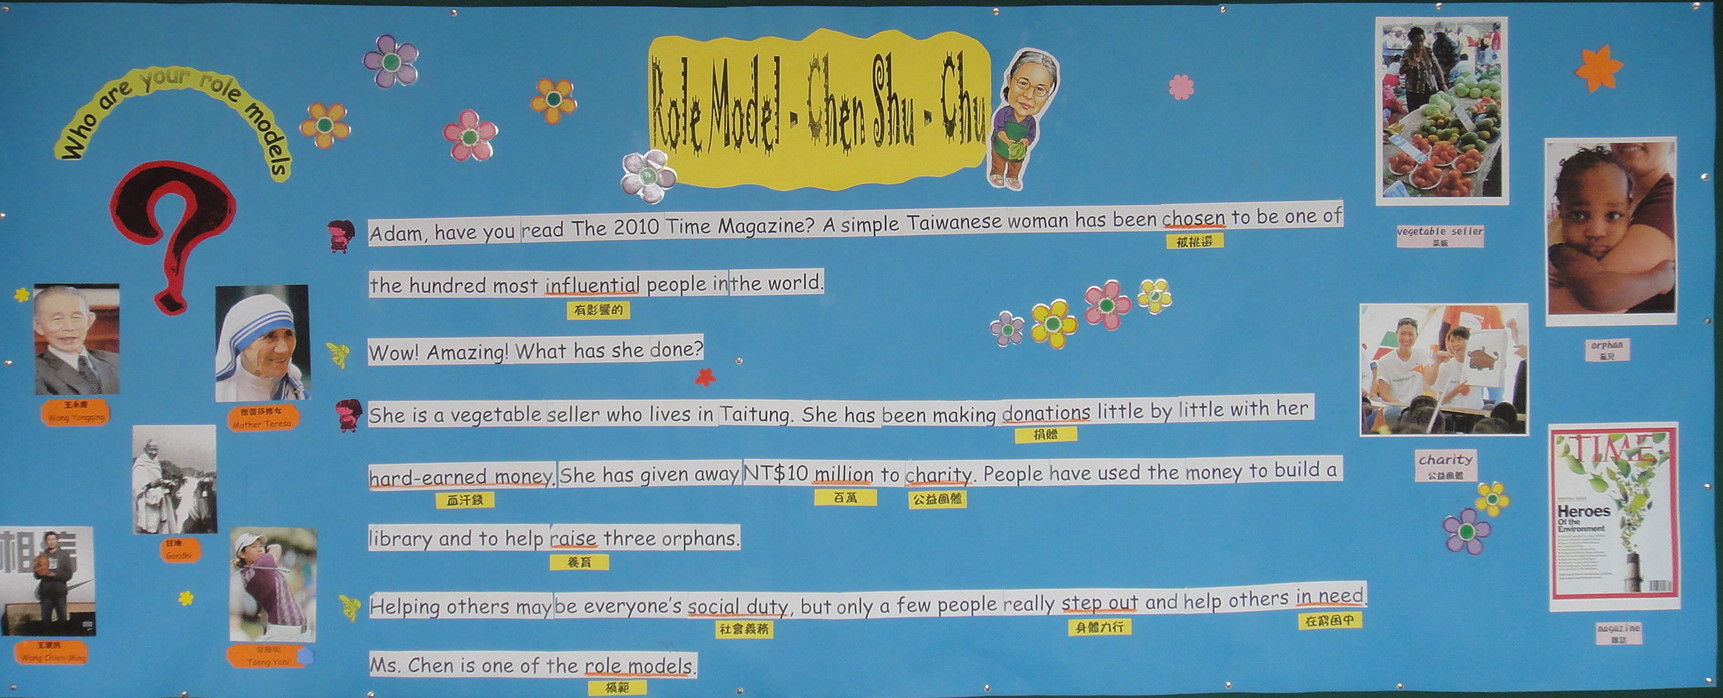 Who are your role models
?
王永慶
Wang Yongqing
德蕾莎修女
Mother Teresa
甘地
Gandhi
王建民
Wang Chien-Ming
Tseng Yani
Role Model - Chen Shu - Chu
Adam, have you read The 2010 Time Magazine? A simple Taiwanese woman has been chosen to be one of
被挑選
the hundred most influential people in the world.
有影響的
Wow! Amazing! What has she done?
She is a vegetable seller who lives in Taitung. She has been making donations little by little with her
捐贈
hard-earned money. She has given away NT$10 million to charity. People have used the money to build a
血汗錢 百萬 公益團體
library and to help raise three orphans.
養育
Helping others may be everyone's social duty, but only a few people really step out and help others in need.
社會義務 身體力行 在窮困中
Ms. Chen is one of the role models.
模範
vegetable seller
菜販
orphan
孤兒
charity
公益團體
TIME
Heroes
Of the
Environment
magazine
雜誌